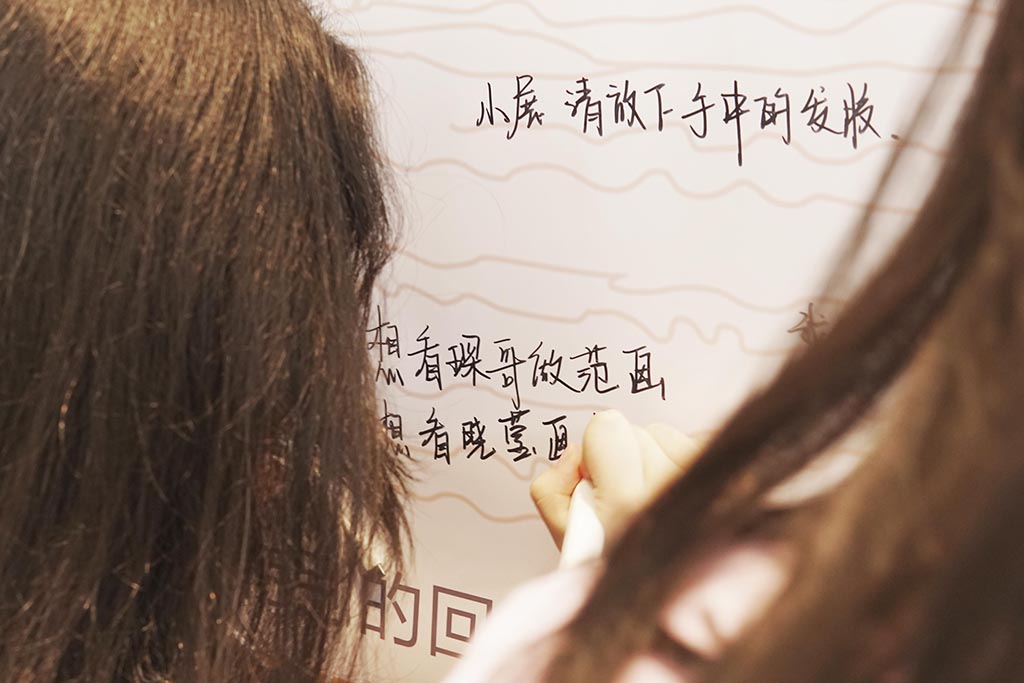 小展 请放下手中的发胶、
想看琛哥做范画
想看晓莹画
的回